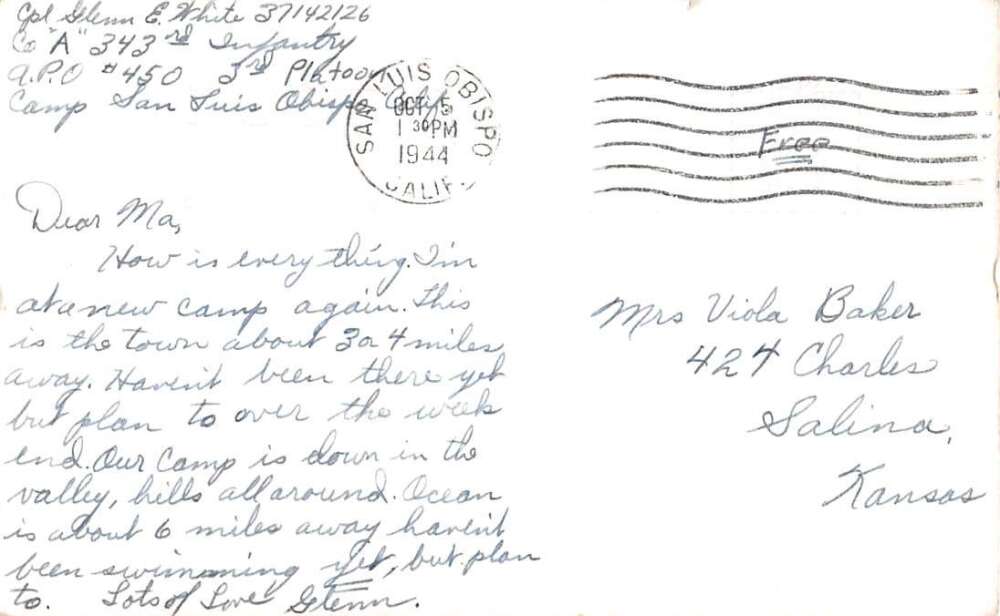 Cpl Glenn E. White 37142126
Co "A" 343rd Infantry
A.P.O #450 3rd Platoon
Camp San Luis Obispo Calif.
SAN LUIS OBISPO
OCT 5
1 30 PM
1944
CALIF.
Free
Dear Ma,
How is every thing. I'm
at a new camp again. This
is the town about 3 or 4 miles
away. Haven't been there yet
but plan to over the week
end. Our Camp is down in the
valley, hills all around. Ocean
is about 6 miles away haven't
been swimming yet, but plan
to. Lots of Love Glenn.
Mrs Viola Baker
424 Charles
Salina,
Kansas